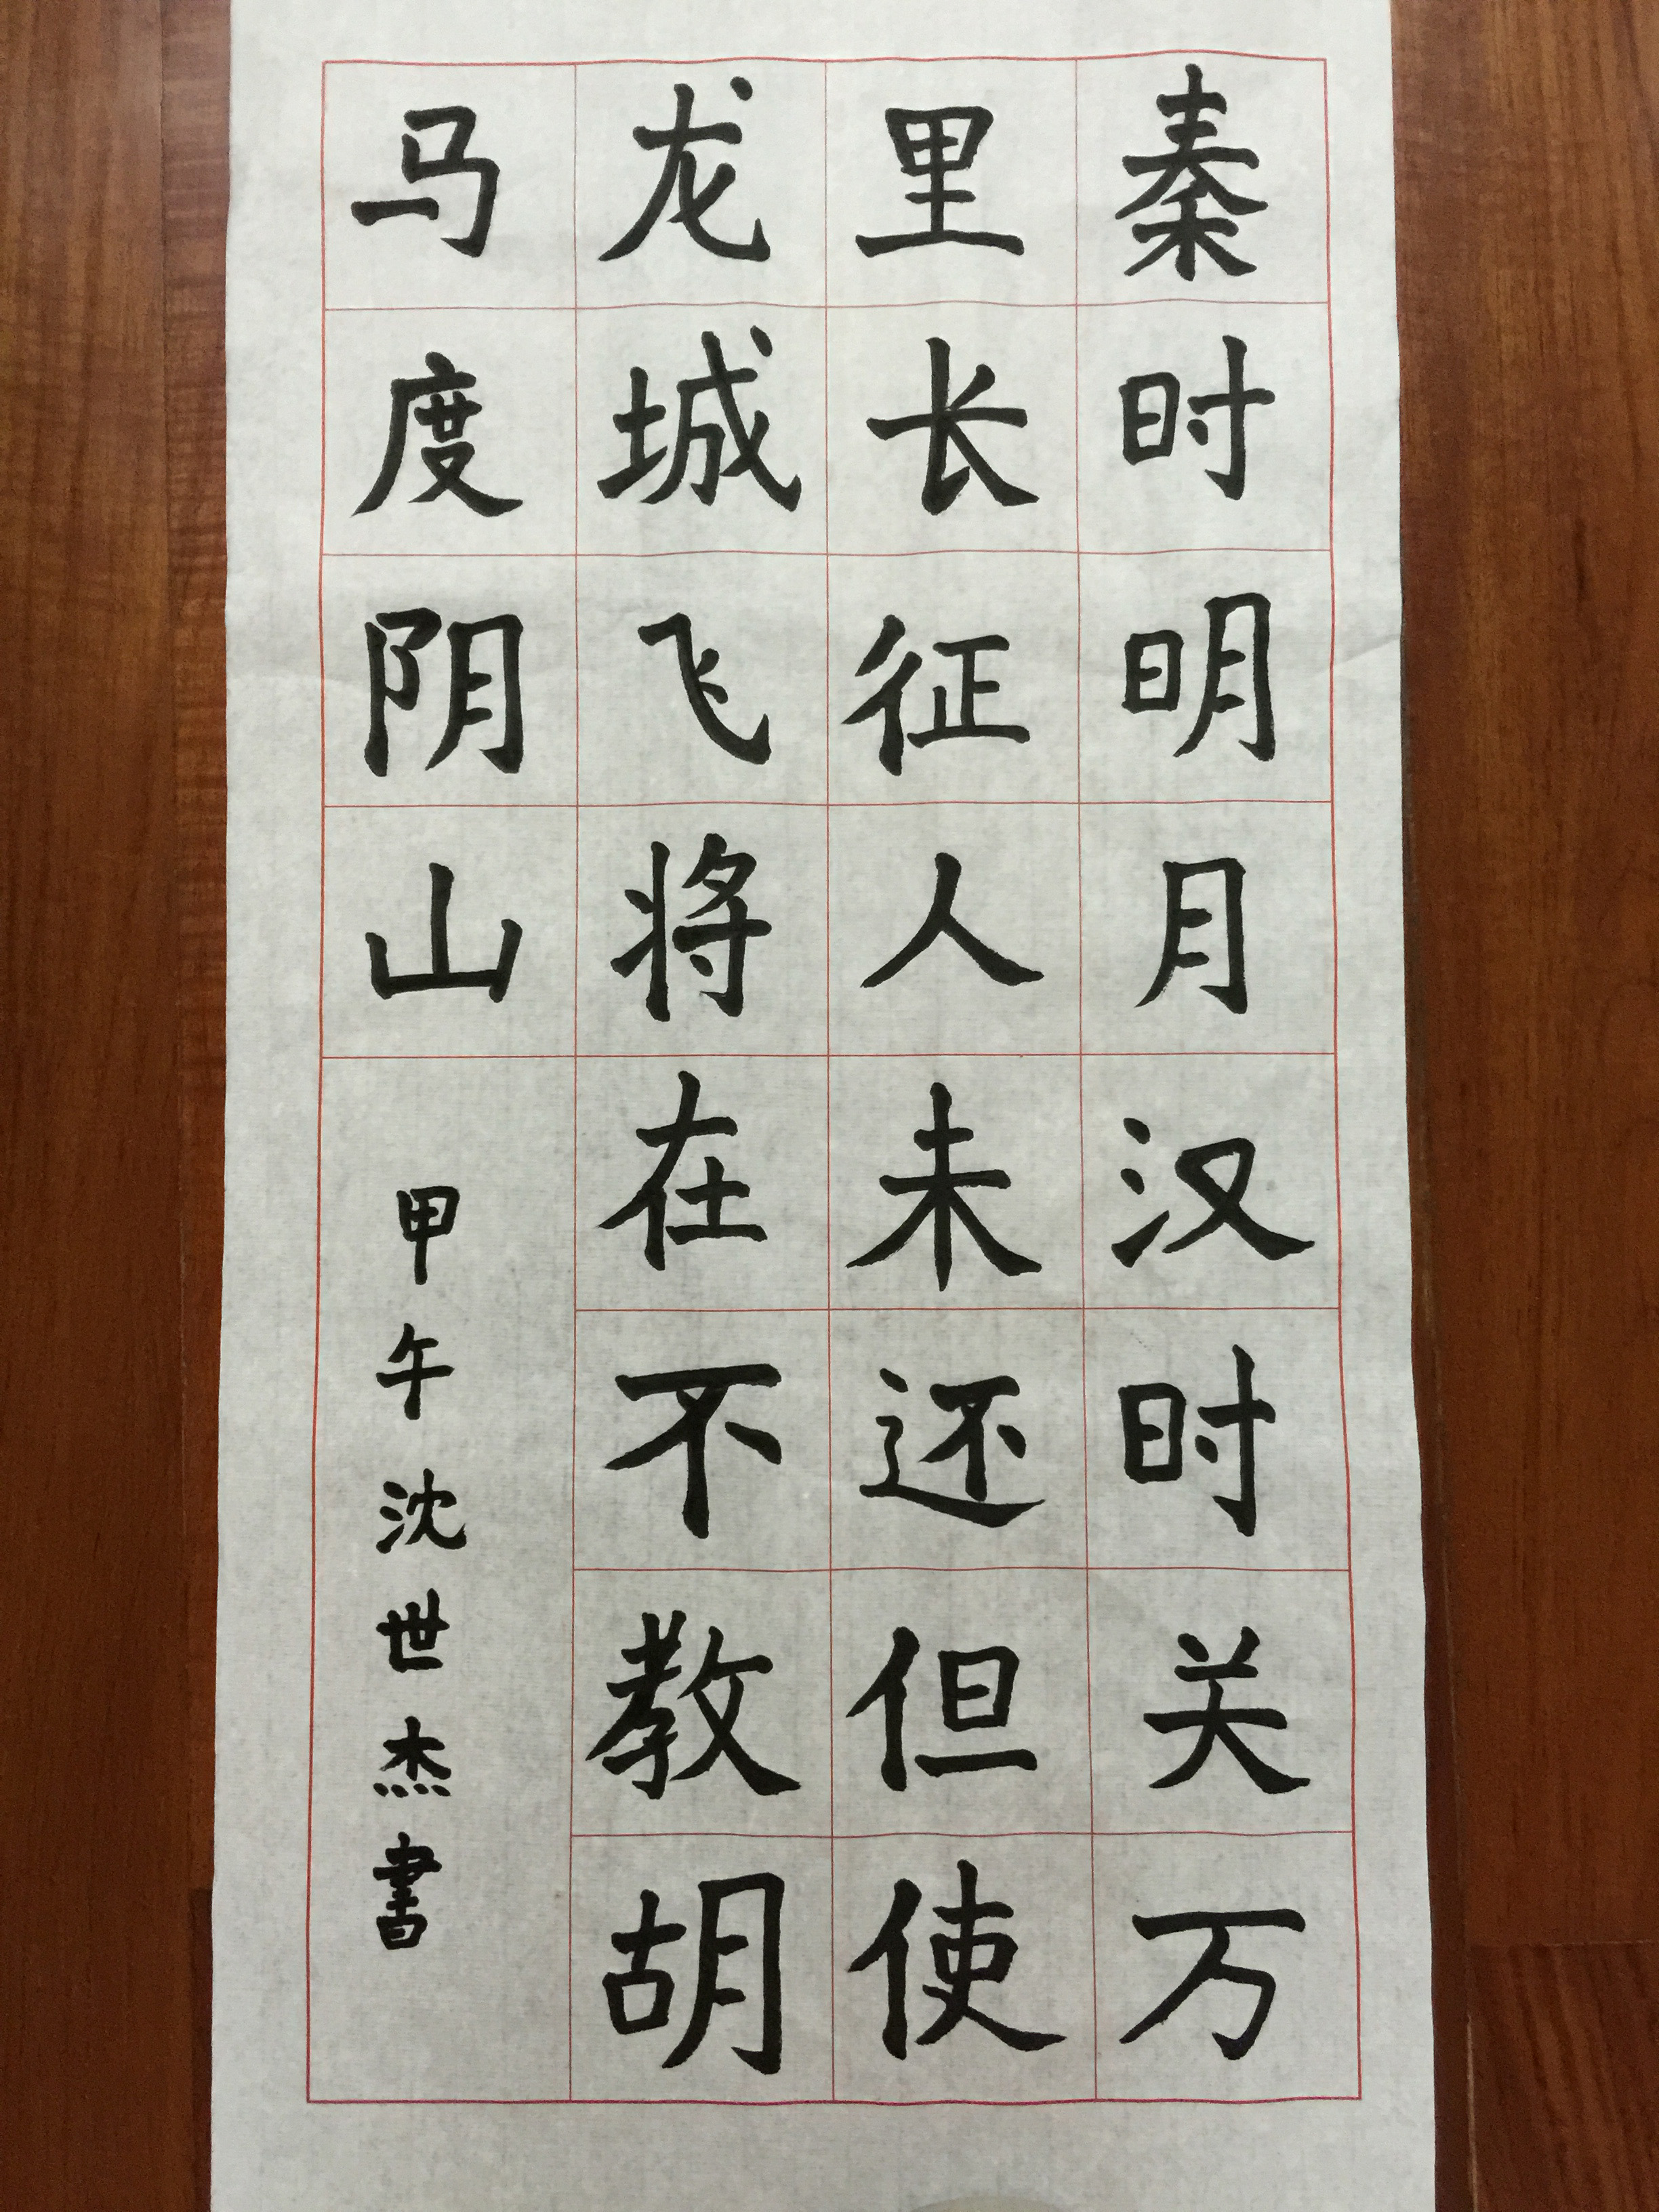 秦时明月汉时关万
里长征人未还但使
龙城飞将在不教胡
马度阴山
甲午沈世杰書